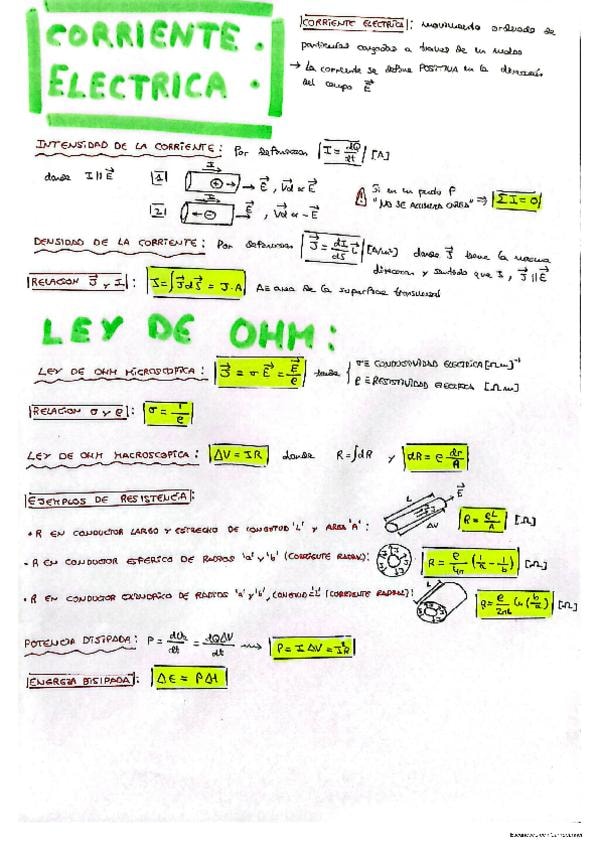 CORRIENTE
ELECTRICA
CORRIENTE ELECTRICA: movimiento ordenado de
particulas cargadas a traves de un medio
→ La corriente se define POSITIVA en la dirección
del campo E⃗
INTENSIDAD DE LA CORRIENTE: Por definicion I = dQ/dt [A]
donde I || E⃗
1 I + E⃗, Vd ∝ E⃗
2 I - E⃗, Vd ∝ - E⃗
! Si en un punto P
"NO SE ACUMULA CARGA" ⇒ ΣI = 0
DENSIDAD DE LA CORRIENTE: Por definicion J⃗ = dI/dS [A/m²] donde J⃗ tiene la misma
direccion y sentido que I, J⃗ || E⃗
RELACION J⃗ y I: I = ∫J⃗dS⃗ = J·A A ≡ area de la superficie transversal
LEY DE OHM:
LEY DE OHM MICROSCOPICA: J⃗ = σE⃗ = E⃗/ρ donde σ ≡ CONDUCTIVIDAD ELECTRICA [Ωm]⁻¹
ρ ≡ RESISTIVIDAD ELECTRICA [Ωm]
RELACION σ y ρ: σ = 1/ρ
LEY DE OHM MACROSCOPICA: ΔV = IR donde R = ∫dR y dR = ρ dr/A
EJEMPLOS DE RESISTENCIA:
• R EN CONDUCTOR LARGO Y ESTRECHO DE LONGITUD 'L' y AREA 'A': L E⃗ ΔV R = ρL/A [Ω]
• R EN CONDUCTOR ESFERICO DE RADIOS 'a' y 'b' (CORRIENTE RADIAL): R = ρ/4π (1/a - 1/b) [Ω]
• R EN CONDUCTOR CILINDRICO DE RADIOS 'a' y 'b', LONGITUD 'L' (CORRIENTE RADIAL): L R = ρ/2πL ln(b/a) [Ω]
POTENCIA DISIPADA: P = = dQΔV/dt ⟿ P = IΔV = I²R
ENERGIA DISIPADA: ΔE = PΔt